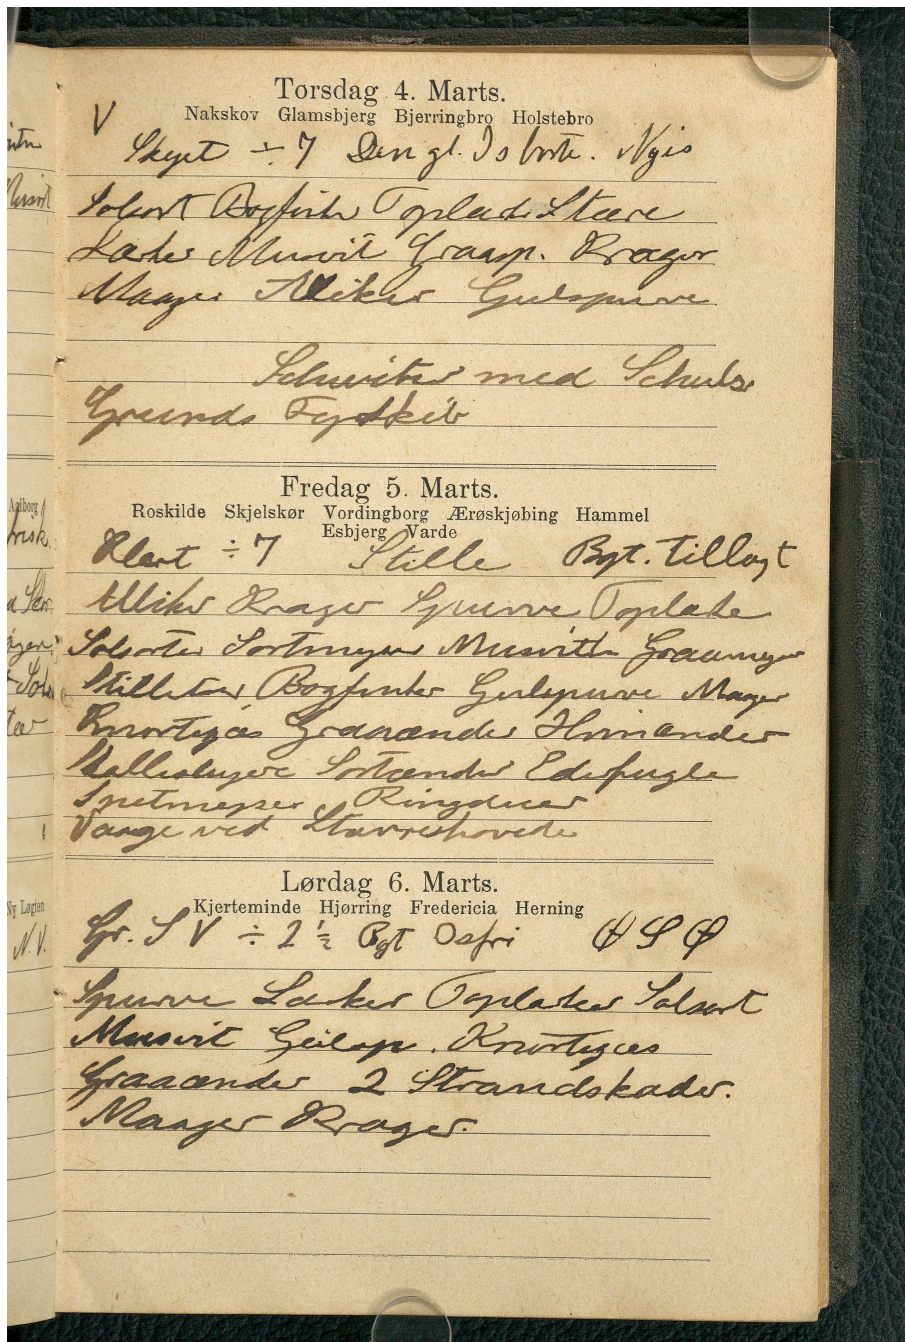 Torsdag 4. Marts.
Nakskov Glamsbjerg Bjerringbro Holstebro
V
Skyet ÷ 7 Den gl. Is borte. Nyis
Solsort Bogfinke Toplærke Stære
Lærker Musvit Graasp. Krager
Maager Alliker Gulspurve
med
Grunds
Fredag 5. Marts.
Roskilde Skjelskør Vordingborg Ærøskjøbing Hammel
Esbjerg Varde
Klart ÷ 7 Stille Bgt. tillagt
Alliker Krager Spurve Toplærke
Solsorter Sortmejser Musvitter Graamejser
Stillitser Bogfinker Gulspurve Maager
Knortegæs Graaænder Hvinænder
Skalleslugere Sortænder Ederfugle
Spetmejser Ringduer
Vaage ved Stavreshovede
Lørdag 6. Marts.
Kjerteminde Hjørring Fredericia Herning
Gr. S V ÷ 2 ½ Bgt Isfri
Spurve Lærker Toplærker Solsort
Musvit Gulsp. Knortegæs
Graaænder 2 Strandskader.
Maager Krager.
Aalborg
Ny Løgten
N. V.